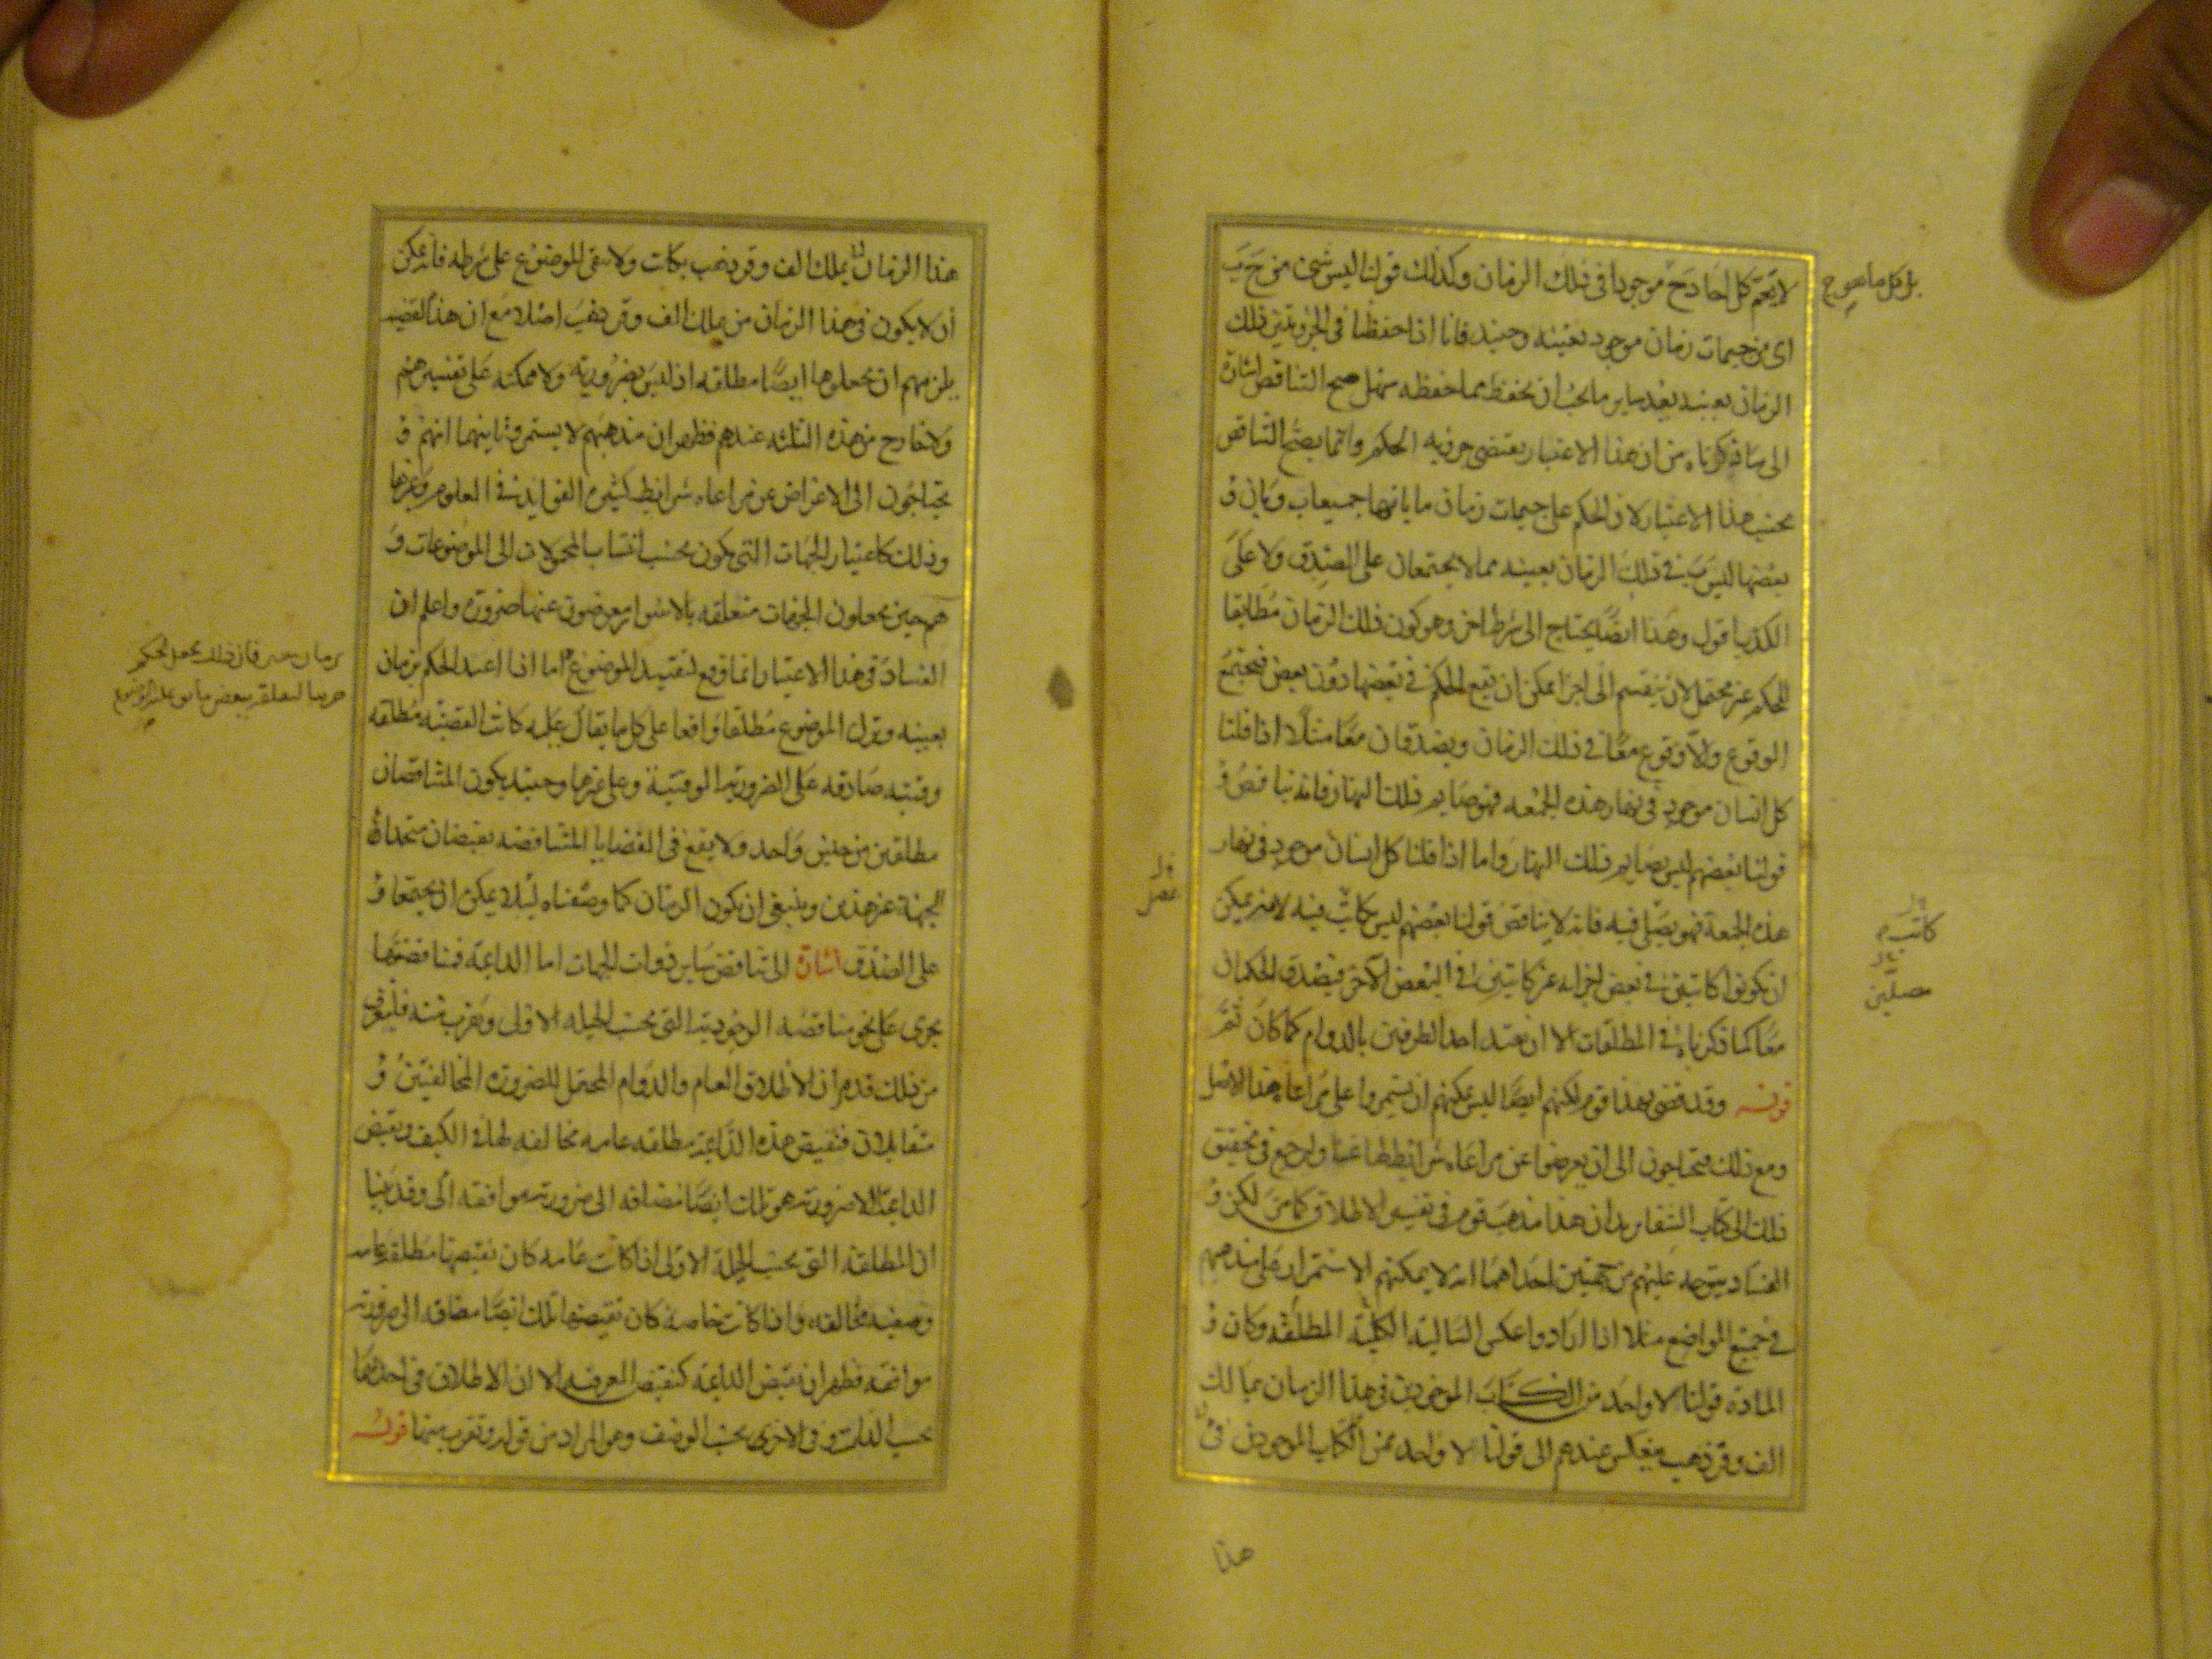 لا تعم كل احاد ج موجودا فى ذلك الزمان وكذلك قولنا ليس شئ من ج ب
بل كل ما هو ج
اى من جيمات زمان موجود بعينه وحينئذ فانا اذا حفظنا فى الجزويتين ذلك
الزمان بعينه بعد ساير ما يجب ان يحفظ مما حفظه سهل صح التناقض اشارة
الى ما ذكرناه من ان هذا الاعتبار يقتضى جزويه الحكم وانما يصح التناقض
بحسب هذا الاعتبار لان الحكم على جيمات زمان ما بانها جميعا ب وبان
بعضها ليس ب فى ذلك الزمان بعينه مما لا يجتمعان على الصدق ولا على
الكذب اقول وهذا ايضا يحتاج الى شرط اخر وهو كون ذلك الزمان مطابقا
للحكم غير محتمل لان ينقسم الى اجزا يمكن ان يقع الحكم فى بعضها دون بعض فيجتمع
الوقوع والاوقوع معا فى ذلك الزمان ويصدقان معا مثلا اذا قلنا
كل انسان موجود فى نهار هذه الجمعه فهو صايم ذلك النهار فانه يناقض
قولنا بعضهم ليس بصايم ذلك النهار واما اذا قلنا كل انسان موجود فى نهار
هذه الجمعة فهو يصلى فيه فانه لا يناقض قولنا بعضهم ليس بكاتب فيه لانه يمكن
كاتب
ان يكونوا كاتبين فى بعض اجزاه غير كاتبين فى البعض الآخر فيصدق الحكمان
مصلين
معا كما ذكرناه فى المطلقات الا ان يقيد احد الطرفين بالدوام كما كان ثم
قوله وقد قضى بهذا قوم لكنهم ايضا ليس يمكنهم ان يستمروا على مراعاه هذا الاصل
ومع ذلك فيحتاجون الى ان يعرضوا عن مراعاه شرايط لها غنا وارجع فى تحقيق
ذلك الى كتاب الشفا يريد ان هذا مذهب قوم فى تفسير الاطلاق كما مر لكن
الفساد يتوجه عليهم من جهتين احداهما انه لا يمكنهم الاستمرار على مذهبهم
فى جميع المواضع مثلا اذا ارادوا عكس السالبة الكلية المطلقه وكان
الماده قولنا لا واحد من الكتاب الموجودين فى هذا الزمان بمالك
الف وقر ذهب فينعكس عندهم الى قولنا لا واحد ممن الكتاب الموجودين فى
هذا
هذا الزمان يملك الف وقر ذهب بكاتب ولا يبقى الموضوع على شرطه فانه يمكن
ان لا يكون فى هذا الزمان من يملك الف وقر ذهب اصلا مع ان هذا القضيه
يلزمهم ان يجعلوها ايضا مطلقه اذ ليس بضروريه ولا ممكنه على تفسيرهم
ولا خارج من هذه الثلثه عندهم فظهر ان مذهبهم لا يستمر وثانيهما انهم
يحتاجون الى الاعراض عن مراعاه شرايط كثيرة الفوايد فى العلوم وغيرها
وذلك كاعتبار الجهات التى يكون بحسب انتساب المحمولات الى الموضوعات
هم حين يجعلون الجهات متعلقه بالاسوار معرضون عنها ضروره واعلم ان
الفساد فى هذا الاعتبار انما وقع لتقييد الموضوع اما اذا اعتبد الحكم بزمان
بعينه وترك الموضوع مطلقا واقعا على كل ما يقال عليه كانت القضيه مطلقه
وقتيه صادقه على الضروريه الوقتية وعلى غيرها وحينئذ يكون المتناقضان
مطلقين من جنس واحد ولا يقع فى القضايا المتناقضه نقيضان متحداة
الجهة غير هذين وينبغى ان يكون الزمان كما وصفناه ليلا يمكن ان يجتمعا
على الصدق اشارة الى تناقض ساير ذوات الجهات اما الدايمة فمناقضتها
يجرى على نحو مناقضه الوجوديه التى بحسب الحيله الاولى وتقرب منه فليعرف
من ذلك قد مر ان الاطلاق العام والدوام المحتمل للضروره المخالفين
متقابلان فنقيض هذه الدايمة مطلقه عامه مخالفه لها فى الكيف ونقيض
الدايمة اللا ضروريه هو تلك ايضا مضافه الى ضروريه موافقه الى وقد بينا
ان المطلقه التى بحسب الحيلة الاولى اذا كانت عامه كان نقيضها مطلقه عامه
وصفيه مخالفه واذا كانت خاصه كان نقيضها تلك ايضا مضافه الى ضروريه
موافقه فظهر ان نقيض الدايمة كنقيض العرفيه الا ان الاطلاق فى احدهما
بحسب الذات وفى الاخرى بحسب الوصف وهو المراد من قوله وتقرب منها قوله